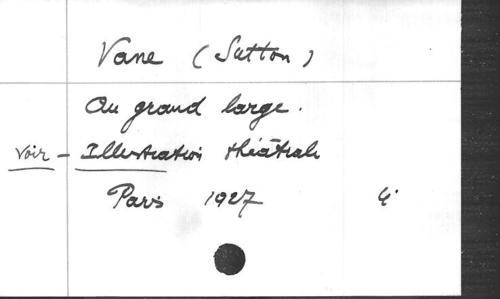 Vane (Sutton)
Au grand large.
Voir - Illustration théâtrale
Paris 1927 4°